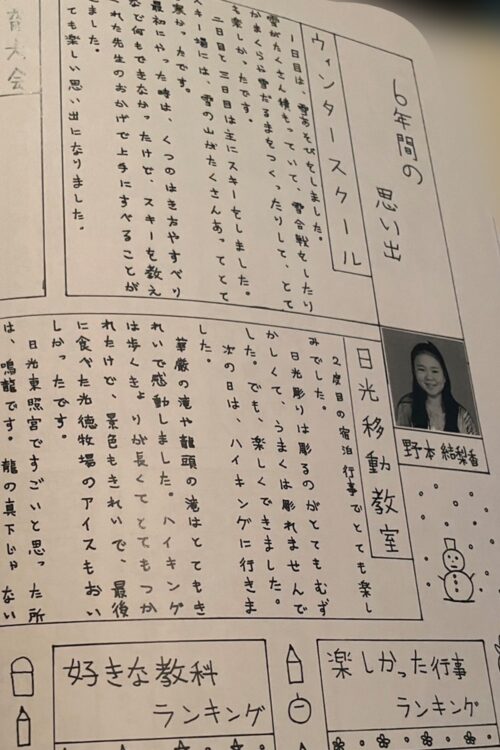 6年間の
思い出
野本結梨香
ウィンタースクール
一日目は、雪あそびをしました。
雪がたくさん積もっていて、雪合戦をしたり
かまくらや雪だるまをつくったりして、とて
も楽しかったです。
二日目と三日目は主にスキーをしました。
キー場には、雪の山がたくさんあってとて
寒かったです。
最初にやった時は、くつのはき方やすべり
など何もできなかったけど、スキーを教え
れた先生のおかげで上手にすべることが
ました。
ても楽しい思い出になりました。
育大会
日光移動教室
2度目の宿泊行事でとても楽し
みでした。
日光彫りは彫るのがとてもむず
かしくて、うまくは彫れませんで
した。でも、楽しくできました。
次の日は、ハイキングに行きま
した。
華厳の滝や龍頭の滝はとてもき
れいで感動しました。ハイキング
は歩くきょりが長くてとてもつか
れたけど、景色もきれいで、最後
に食べた光徳牧場のアイスもおい
しかったです。
日光東照宮ですごいと思った所
は、鳴龍です。龍の真下じゃない
楽しかった行事
ランキング
好きな教科
ランキング